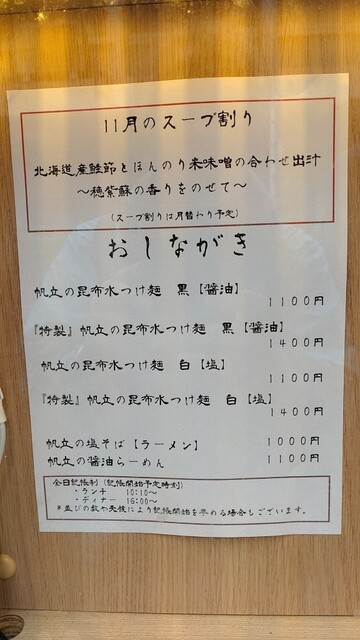 11月のスープ割り
北海道産鮭節とほんのり米味噌の合わせ出汁
～穂紫蘇の香りをのせて～
(スープ割りは月替わり予定)
おしながき
帆立の昆布水つけ麺 黒【醤油】
1100円
『特製』帆立の昆布水つけ麺 黒【醤油】
1400円
帆立の昆布水つけ麺 白【塩】
1100円
『特製』帆立の昆布水つけ麺 白【塩】
1400円
帆立の塩そば【ラーメン】 1000円
帆立の醤油らーめん 1100円
全日記帳制(記帳開始予定時刻)
・ランチ 10:10～
・ディナー 16:00～
*並びの数や天候により記帳開始を早める場合もございます。